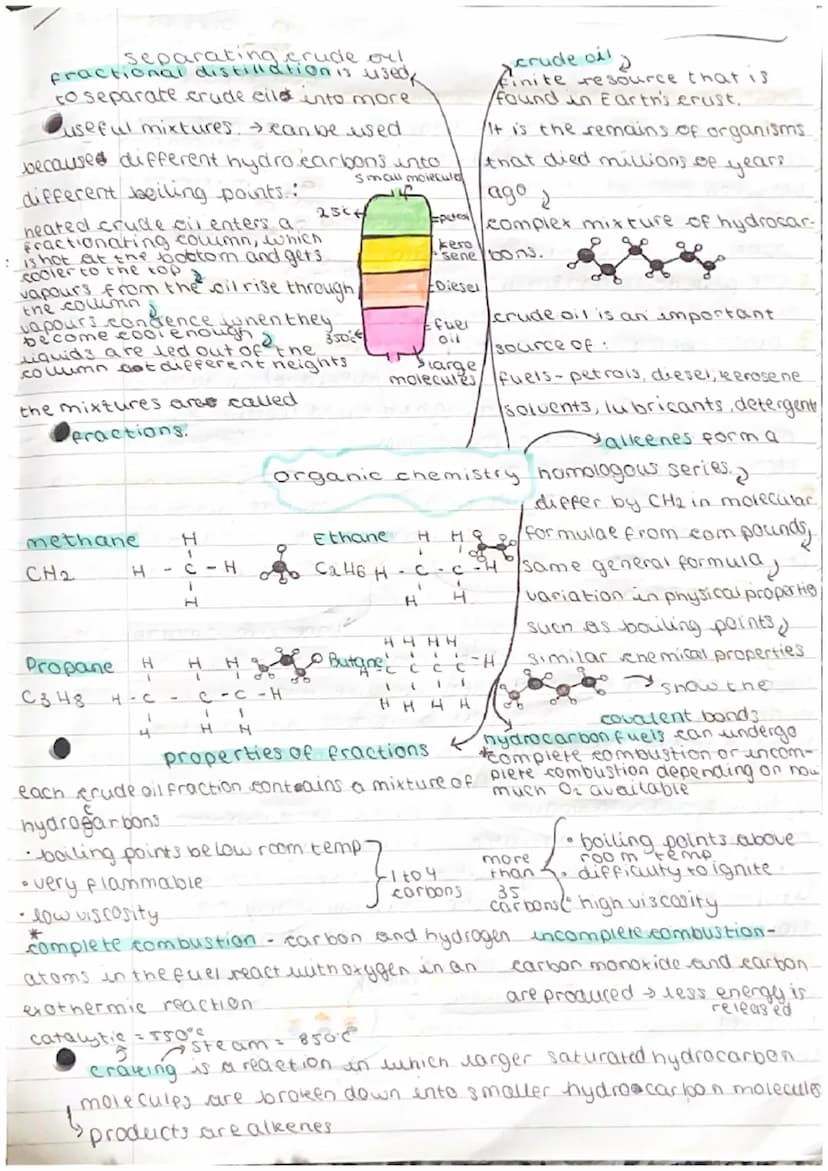 separating crude oil
fractional distillation is used
to separate crude oil into more
useful mixtures. → can be used
because different hydrocarbons into
different boiling points:
heated crude oil enters a
fractionating column, which
is hot at the bottom and gets
cooler to the top
vapours from the oil rise through
the column
vapours condence when they
become cool enough
liquids are led out of the
column at different heights
the mixtures are called
fractions.
small molecule
25°C
petrol
kero
sene
Diesel
350°C
fuel
oil
large
molecules
crude oil
finite resource that is
found in Earth's crust.
It is the remains of organisms
that died millions of years
ago
complex mixture of hydrocar-
bons.
crude oil is an important
source of:
fuels- petrols, diesel, kerosene
solvents, lubricants, detergent
organic chemistry
alkenes form a
homologous series.
differ by CH2 in molecular
formulae from compounds,
same general formula,
variation in physical propertie
such as boiling points,
similar chemical properties
→ show the
covalent bonds
methane
CH2
H
H - C - H
H
Ethane
C2H6
H H
H - C - C - H
H H
Propane
C3H8
H H H
H - C - C - C - H
H H H
Butane
H H H H
H - C C C C - H
H H H H
hydrocarbon fuels can undergo
*complete combustion or incom-
plete combustion depending on how
much O2 available
properties of fractions
each crude oil fraction contains a mixture of
hydrocarbons
• boiling points below room temp
• very flammable
• low viscosity
1 to 4
carbons
more
than
35
carbons
• boiling points above
room temp
• difficulty to ignite
• high viscosity
*
complete combustion - carbon and hydrogen
atoms in the fuel react with oxygen in an
exothermic reaction
incomplete combustion-
carbon monoxide and carbon
are produred → less energy is
released
catalytic = 550°C
steam = 850°C
craking is a reaction in which larger saturated hydrocarbon
molecules are broken down into smaller hydrocarbon molecules
products are alkenes